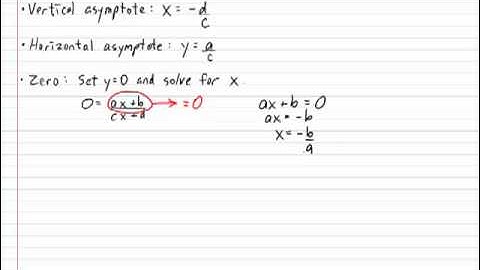 • Vertical asymptote: x = -d/c
• Horizontal asymptote: y = a/c
• Zero: Set y=0 and solve for x
0 = (ax+b)/(cx+d) → = 0
ax + b = 0
ax = -b
x = -b/a